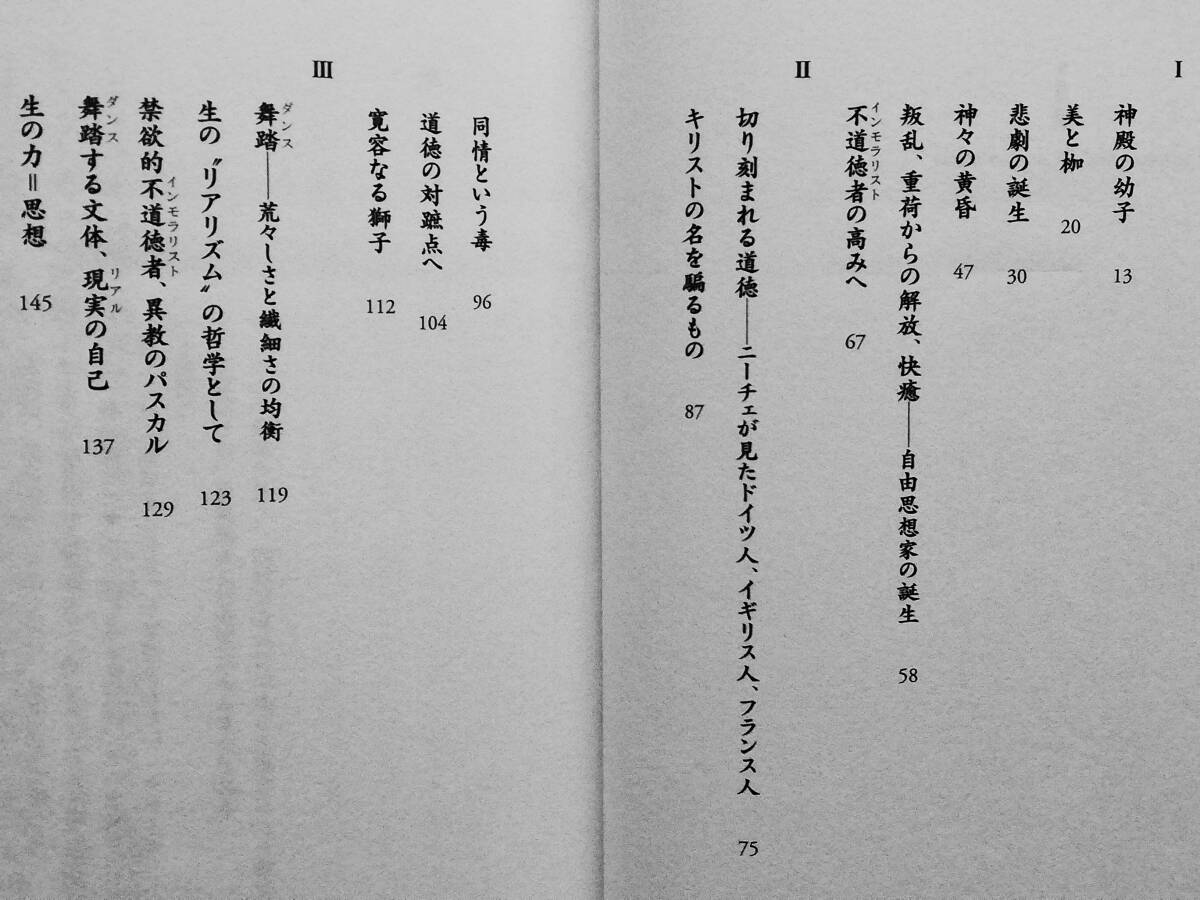 Ⅰ
神殿の幼子 13
美と枷 20
悲劇の誕生 30
神々の黄昏 47
叛乱、重荷からの解放、快癒――自由思想家の誕生 58
不道徳者の高みへ 67
インモラリスト
Ⅱ
切り刻まれる道徳――ニーチェが見たドイツ人、イギリス人、フランス人 75
キリストの名を騙るもの 87
同情という毒 96
道徳の対蹠点へ 104
寛容なる獅子 112
Ⅲ
舞踏――荒々しさと繊細さの均衡 119
ダンス
生の〝リアリズム〟の哲学として 123
禁欲的不道徳者、異教のパスカル 129
インモラリスト
舞踏する文体、現実の自己 137
ダンス リアル
生の力=思想 145